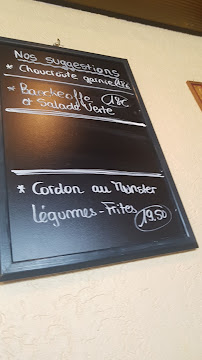 Nos suggestions
* Choucroute garnie 18€
* Baeckeoffe 18€
et Salade Verte
* Cordon au Munster
Légumes-Frites 19.50